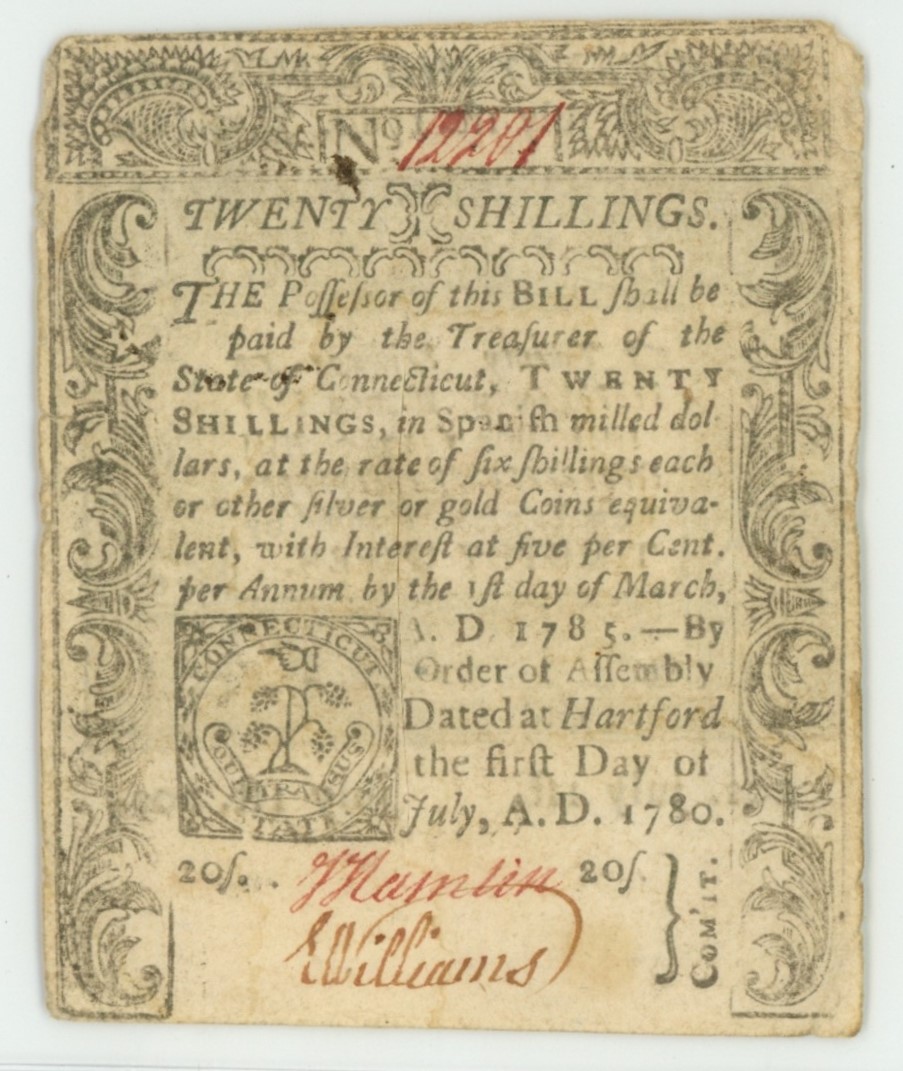 No 12281
TWENTY SHILLINGS.
THE Poſſeſsor of this BILL ſhall be
paid by the Treaſurer of the
State of Connecticut, TWENTY
SHILLINGS, in Spaniſh milled dol-
lars, at the rate of ſix ſhillings each
or other ſilver or gold Coins equiva-
lent, with Intereſt at five per Cent.
per Annum by the 1ſt day of March,
A. D. 1785.—By
Order of Aſſembly
Dated at Hartford
the firſt Day of
July, A.D. 1780.
CONNECTICUT
QUI TRA SUS
STATE
20ſ. 20ſ.
Hamlin
EWilliams
COM'IT.